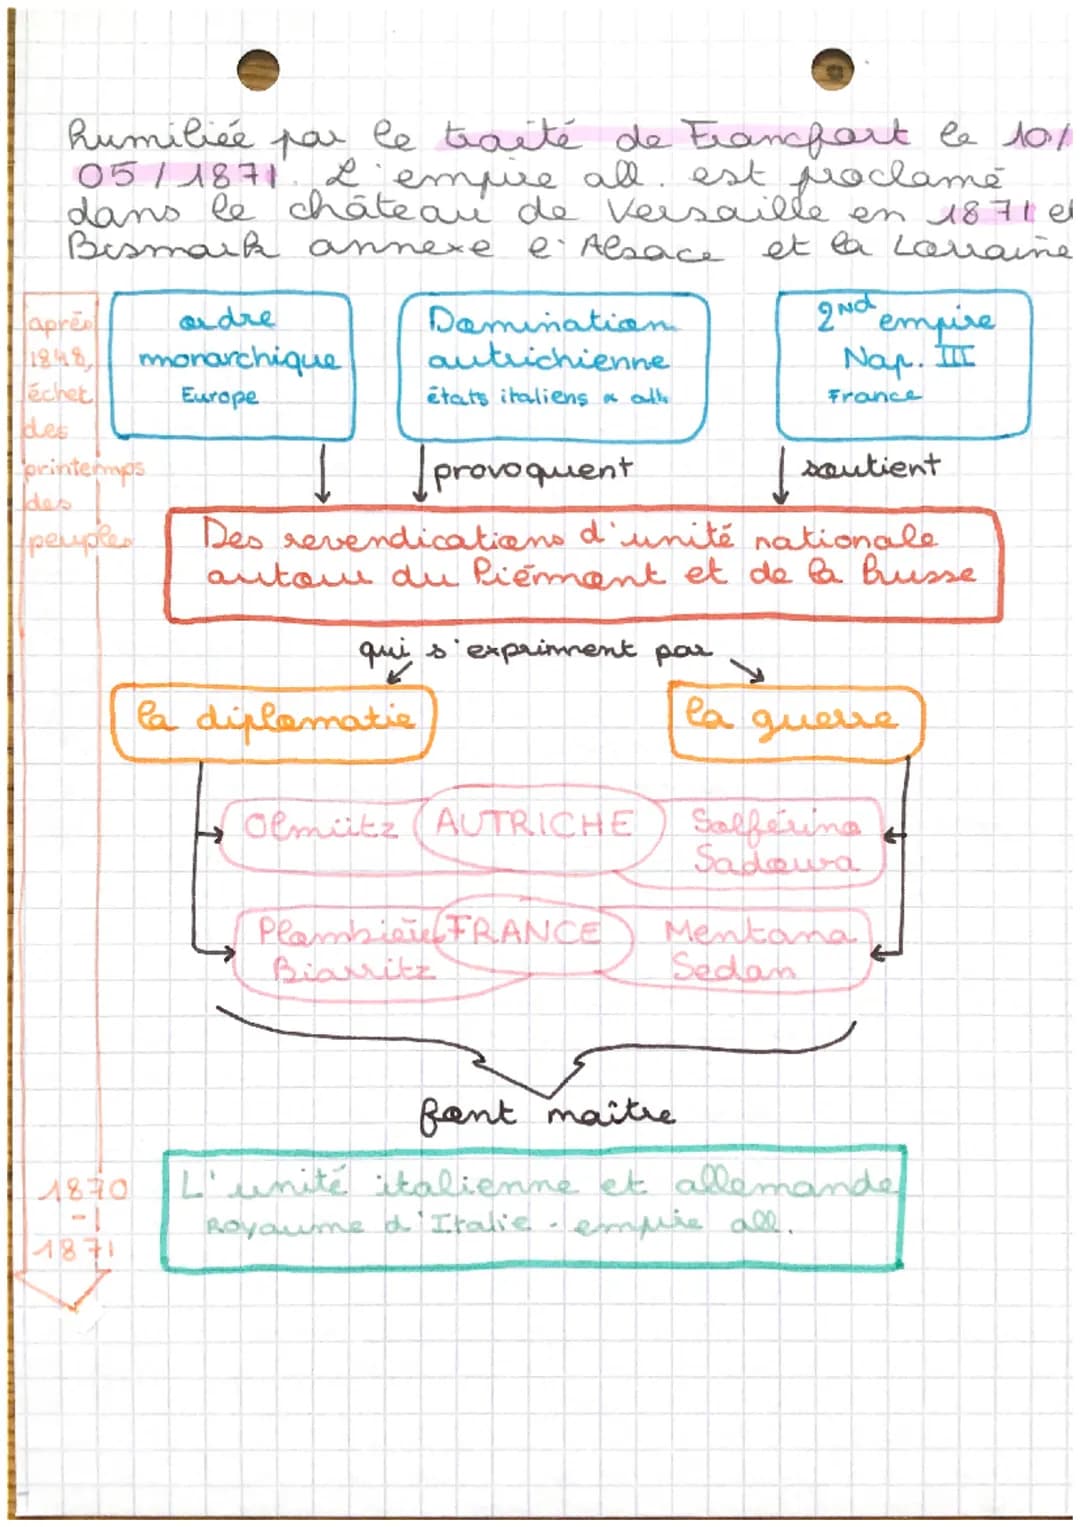 humiliée par le traité de Francfort le 10/
05/1871. L'empire all. est proclamé
dans le château de Versaille en 1871 et
Bismark annexe l'Alsace et la Lorraine
après
1848,
échet
des
printemps
des
peuples
ordre
monarchique
Europe
Domination
autrichienne
états italiens & all.
2ND empire
Nap. III
France
provoquent
soutient
Des revendications d'unité nationale
autour du Piémont et de la Prusse
qui s'expriment par
la diplomatie
la guerre
Olmütz
AUTRICHE
Solférino
Sadowa
Plombières
FRANCE
Mentana
Biarritz
Sedan
font maître
1870
-
1871
L'unité italienne et allemande
Royaume d'Italie - empire all.